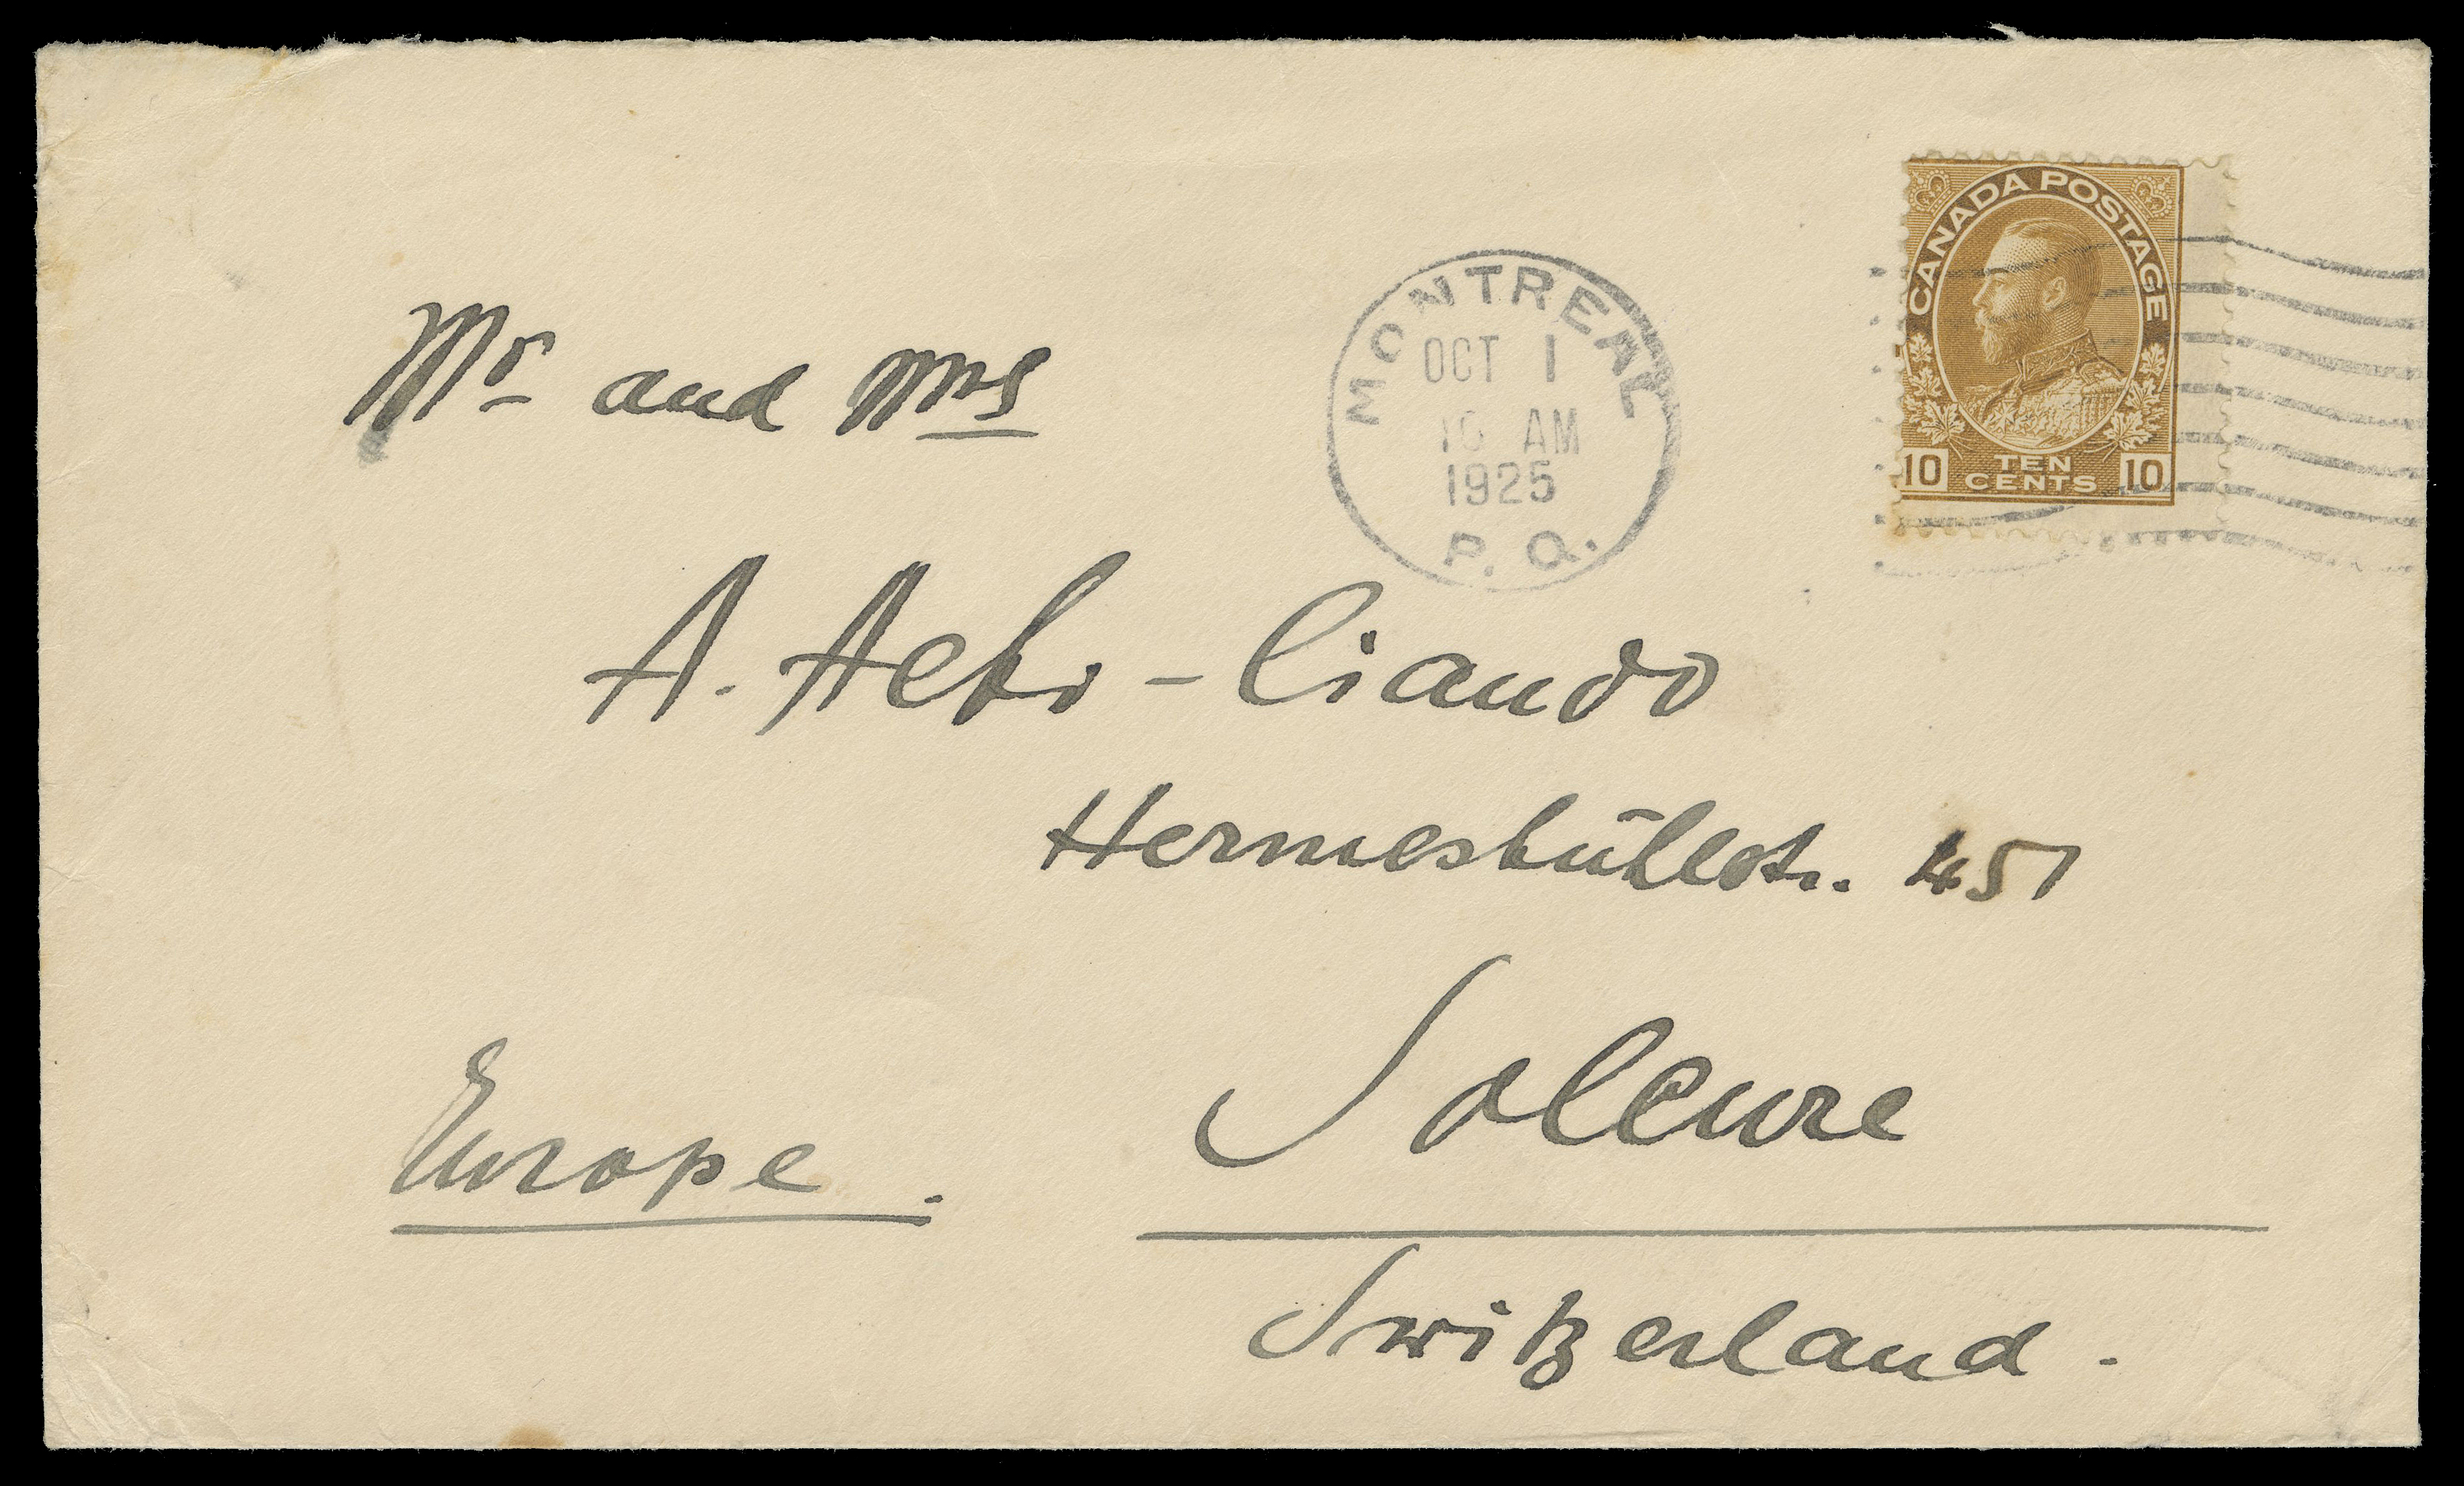 CANADA POSTAGE
10 TEN CENTS 10
MONTREAL
OCT 1
10 AM
1925
P. Q.
Mr and Mrs
A. Aebi - Ciando
Hermesbühlstr. 451
Soleure
Europe.
Switzerland.